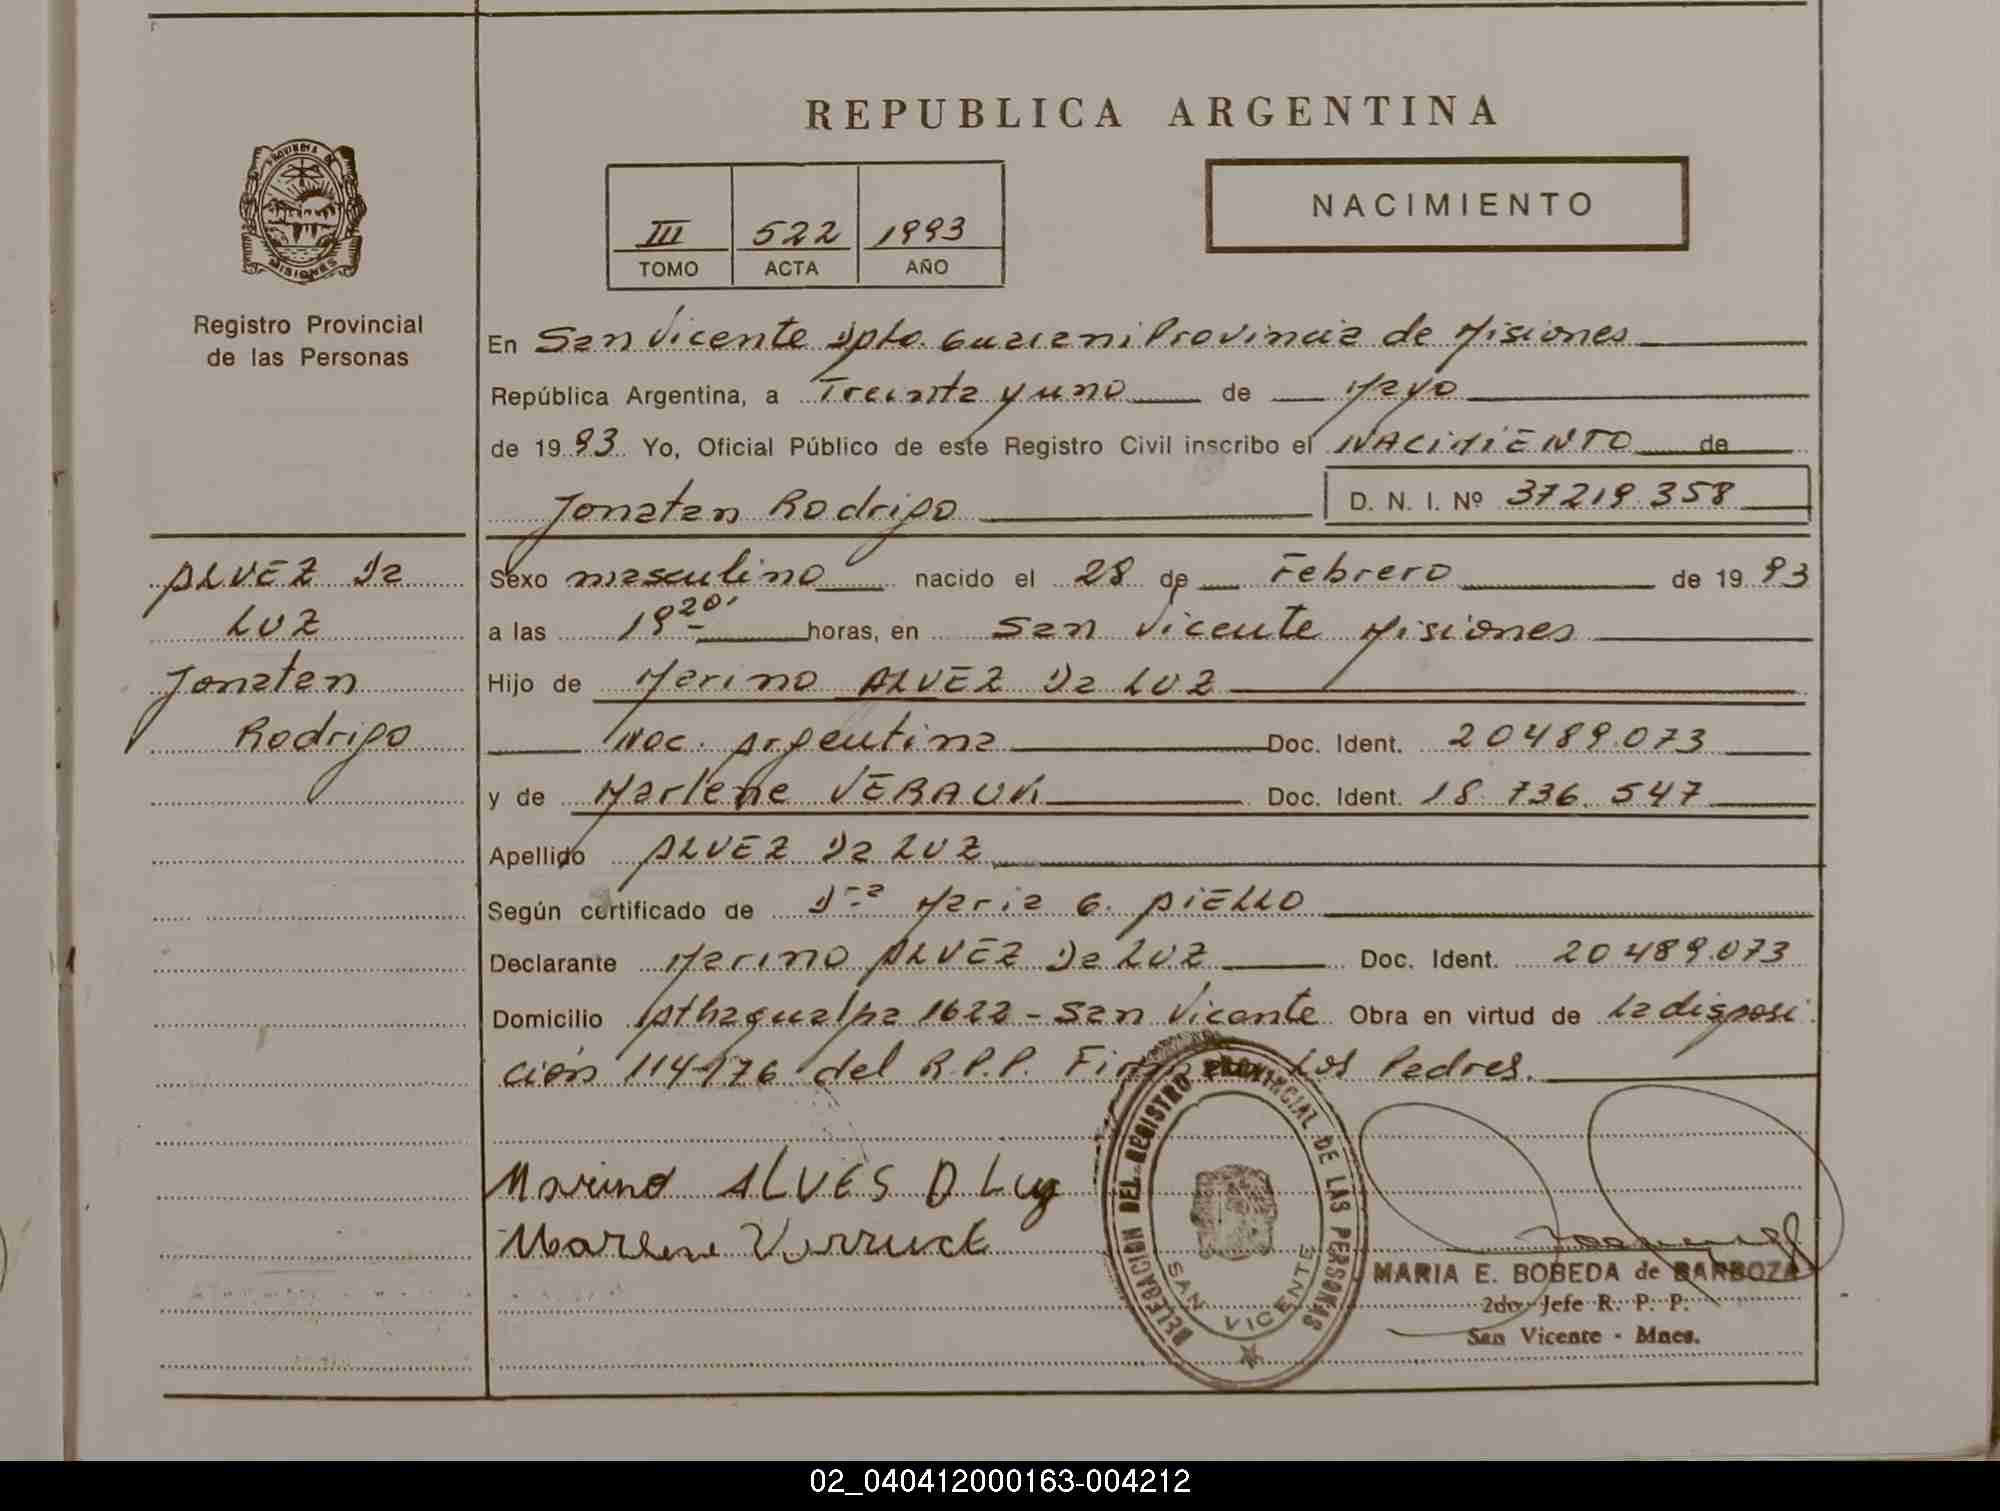 REPUBLICA ARGENTINA
PROVINCIA DE
MISIONES
Registro Provincial
de las Personas
NACIMIENTO
III 522 1993
TOMO ACTA AÑO
En San Vicente Dpto. Guarani Provincia de Misiones
República Argentina, a Treinta y uno de Mayo
de 1993 Yo, Oficial Público de este Registro Civil inscribo el NACIMIENTO de
Jonatan Rodrigo D. N. I. Nº 37219.358
ALVEZ Da
LUZ
Jonatan
Rodrigo
Sexo masculino nacido el 28 de Febrero de 1993
a las 19 20' horas, en San Vicente Misiones
Hijo de Marino ALVEZ Da LUZ
Nac. Argentina Doc. Ident. 20489.073
y de Marlene Doc. Ident. 18.736.547
Apellido ALVEZ Da LUZ
Según certificado de Dra Maria G. AIELLO
Declarante Marino ALVEZ Da LUZ Doc. Ident. 20489.073
Domicilio 1622 - San Vicente Obra en virtud de la disposi
ción 114-176 del R.P.P. Los Padres.
Marino ALVES D Luz
DELEGACION DEL REGISTRO PROVINCIAL DE LAS PERSONAS
SAN VICENTE
MARIA E. BOBEDA de BARBOZA
2do Jefe R. P. P.
San Vicente - Mnes.
02_040412000163-004212